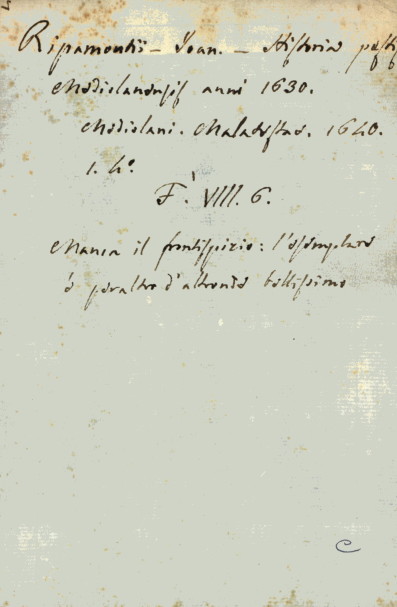 Ripamontii - Joan. - Historia pestis
Mediolanensis anni 1630.
Mediolani. Malatestae. 1640.
1. 4º.
F. VIII. 6.
Manca il frontispizio: l'esemplare
è peraltro d'altronde bellissimo
C